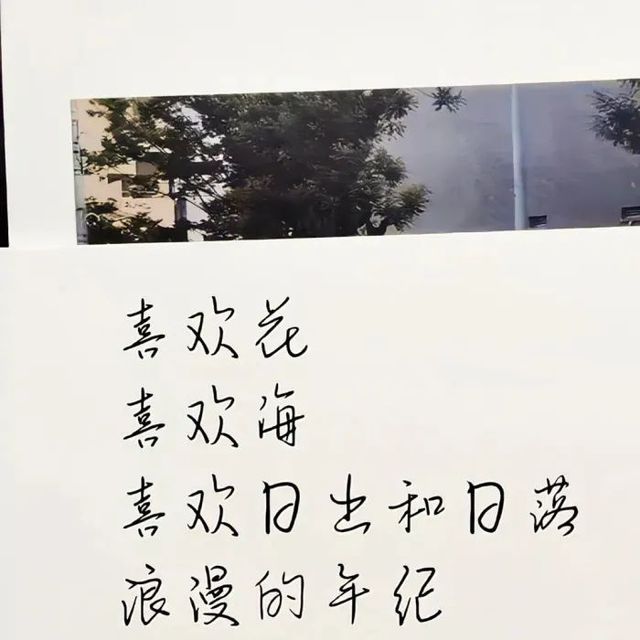 喜欢花
喜欢海
喜欢日出和日落
浪漫的年纪